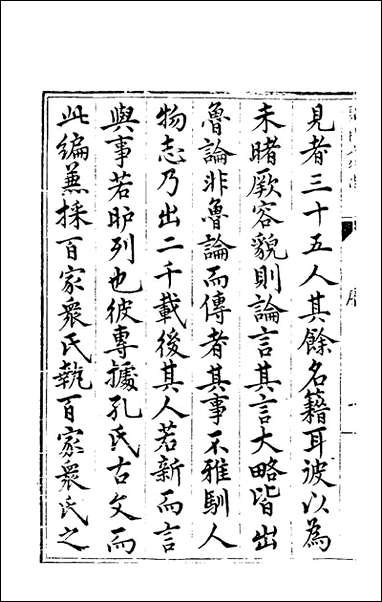 見者三十五人其餘名籍耳彼以為
未睹厥容貌則論言其言大略皆出
魯論非魯論而傳者其事不雅馴人
物志乃出二千載後其人若新而言
與事若臚列也彼專據孔氏古文而
此編兼採百家衆氏執百家衆氏之
序